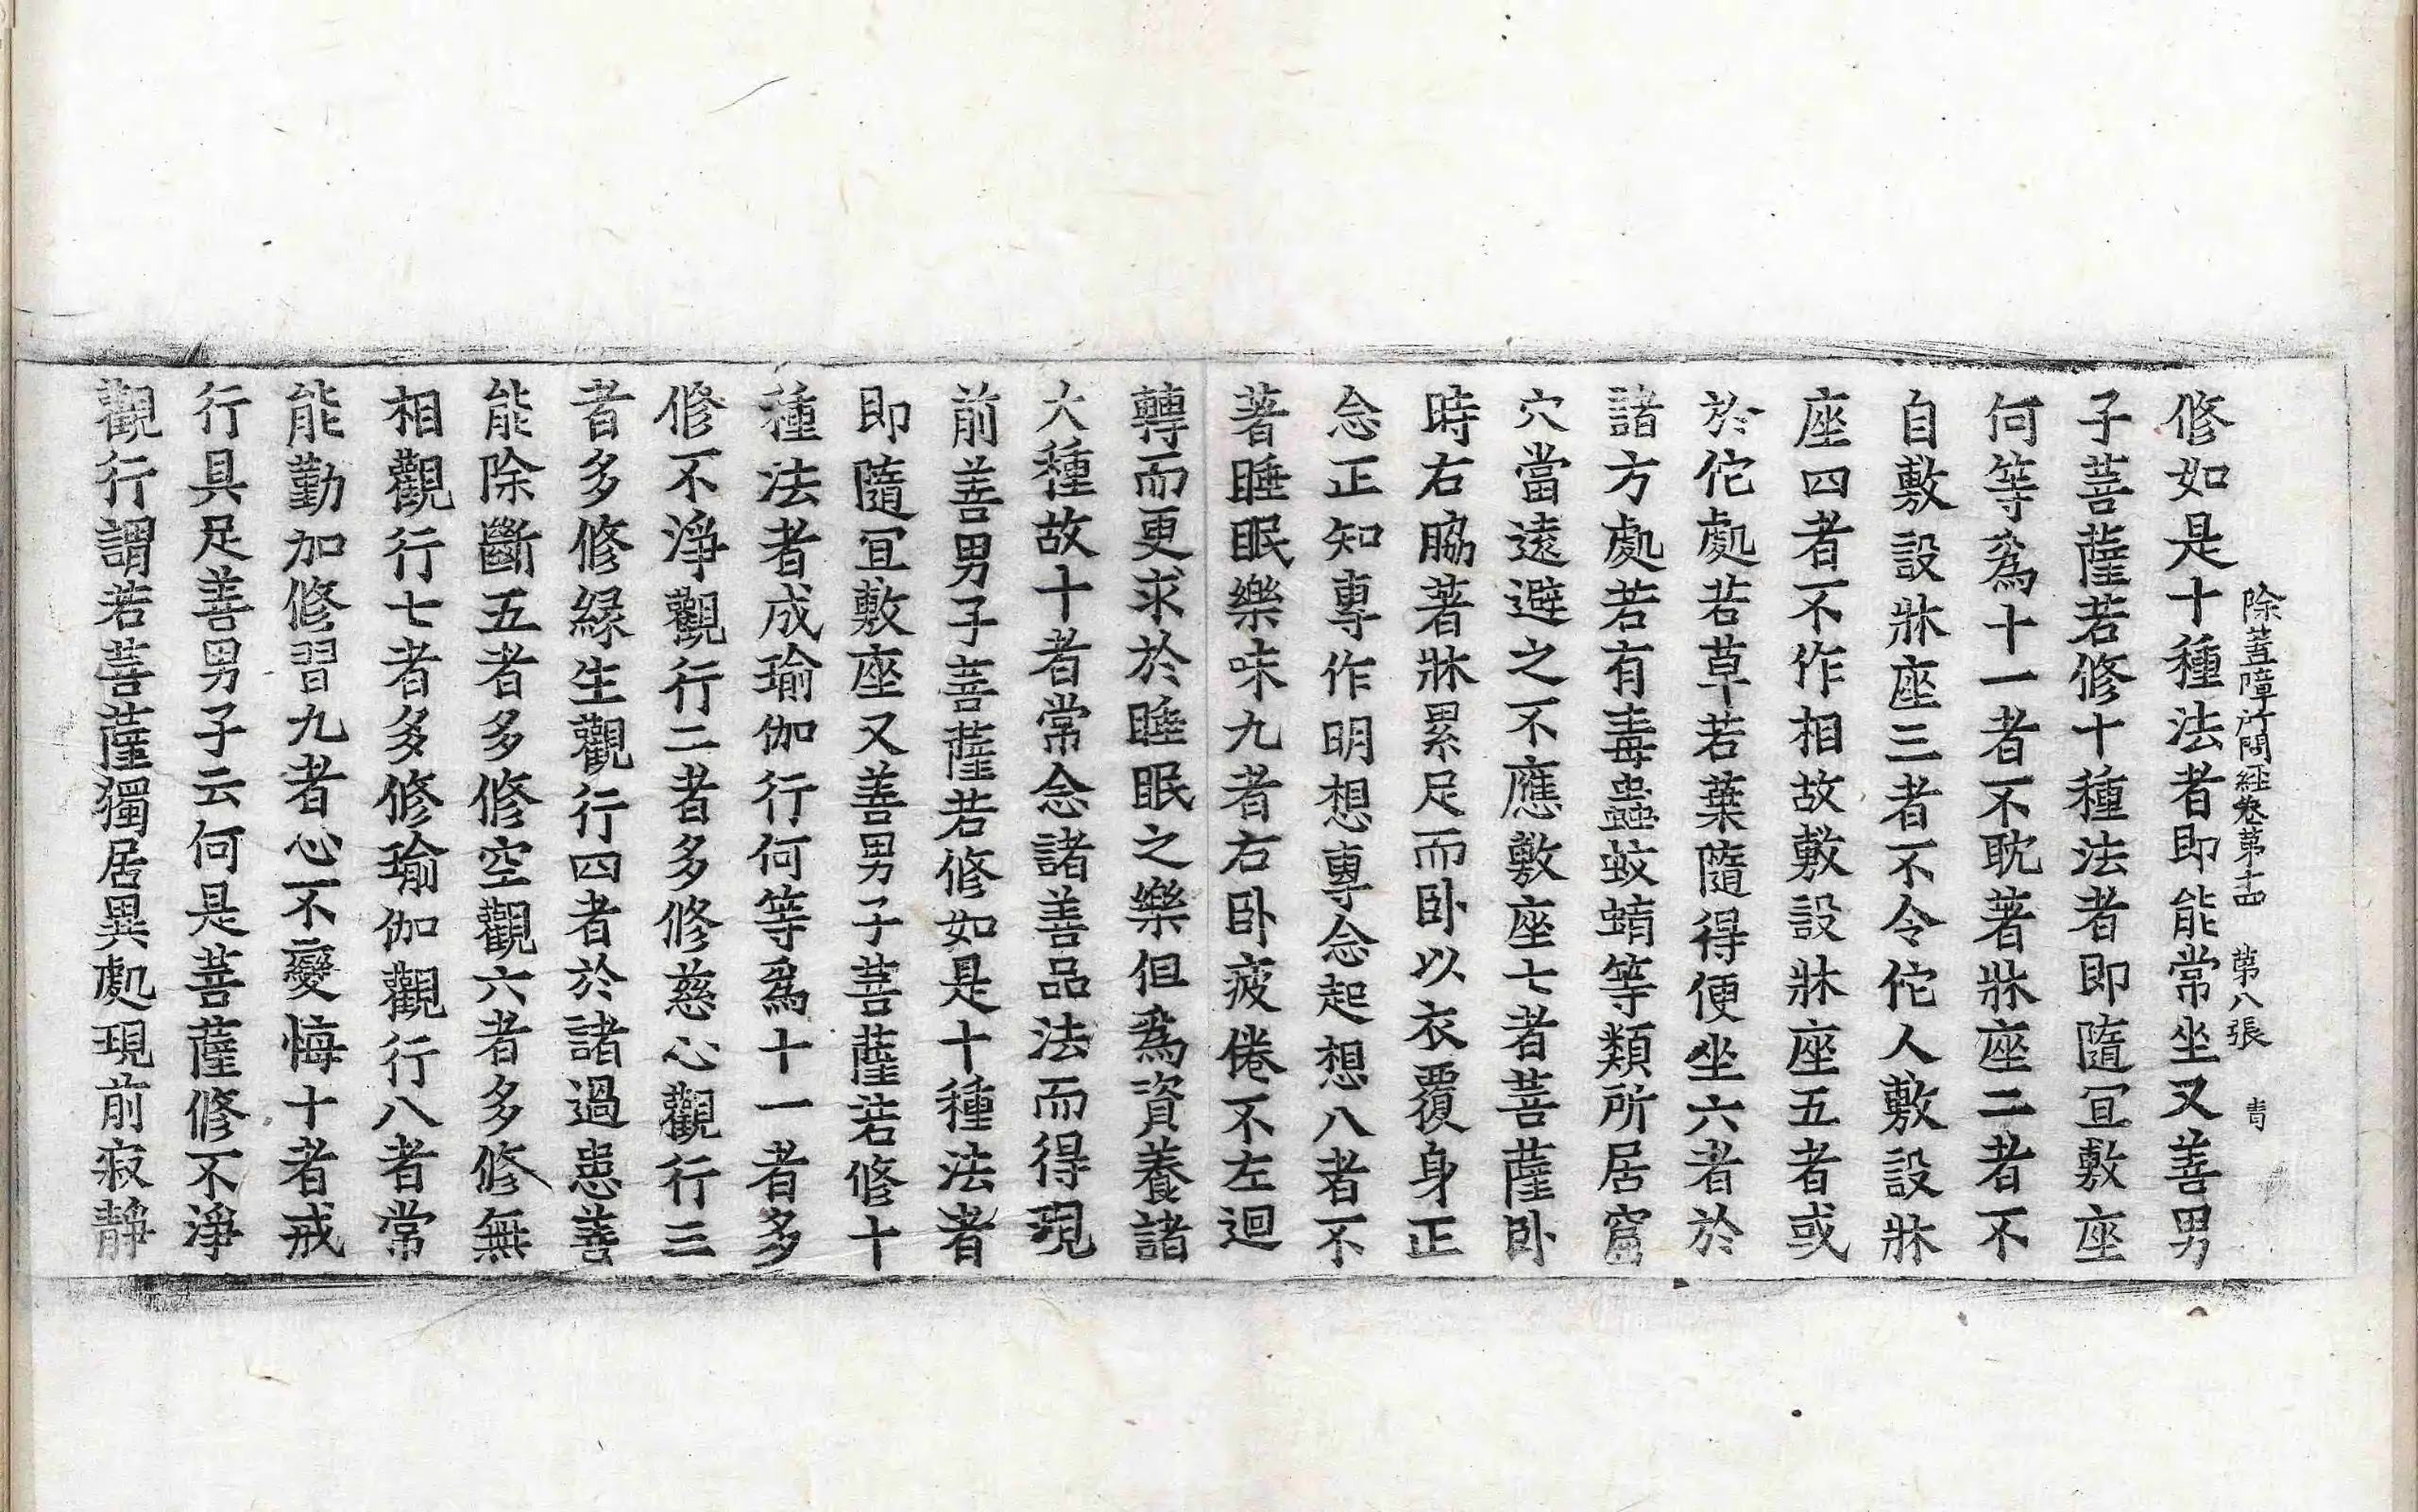 除蓋障所問經卷第十四 第八張
修如是十種法者即能常坐又善男
子菩薩若修十種法者即隨冝敷座
何等爲十一者不耽著牀座二者不
自敷設牀座三者不令佗人敷設牀
座四者不作相故敷設牀座五者或
於佗處若草若葉隨得便坐六者於
諸方處若有毒蟲蚊蜻等類所居窟
穴當遠避之不應敷座七者菩薩卧
時右脇著牀累足而卧以衣覆身正
念正知專作明想專念起想八者不
著睡眠樂味九者右卧疲倦不左迴
轉而更求於睡眠之樂但爲資養諸
大種故十者常念諸善品法而得現
前善男子菩薩若修如是十種法者
即隨冝敷座又善男子菩薩若修十
種法者成瑜伽行何等爲十一者多
修不淨觀行二者多修慈心觀行三
者多修緣生觀行四者於諸過患善
能除斷五者多修空觀六者多修無
相觀行七者多修瑜伽觀行八者常
能勤加修習九者心不變悔十者戒
行具足善男子云何是菩薩修不淨
觀行謂若菩薩獨居異處現前寂靜